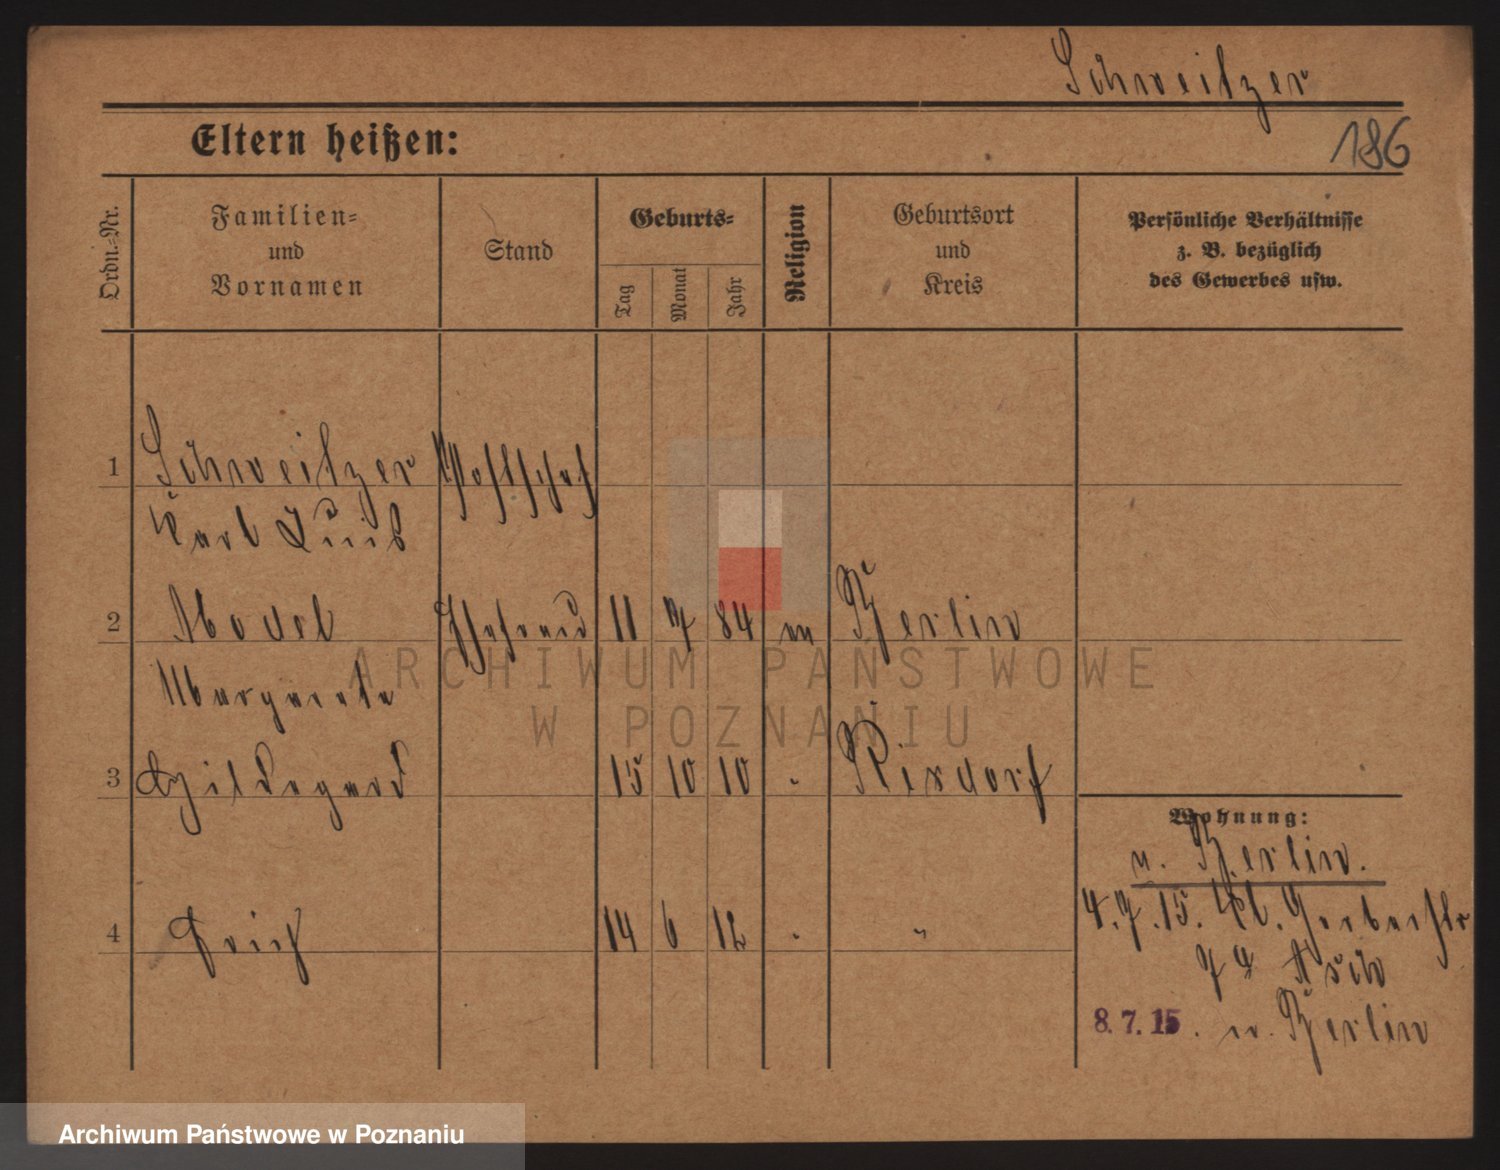 Schweitzer
186
Eltern heißen:
Ordn.-Nr.
Familien-
und
Vornamen
Stand
Geburts-
Tag
Monat
Jahr
Religion
Geburtsort
und
Kreis
Persönliche Verhältnisse
z. B. bezüglich
des Gewerbes usw.
1 Schweitzer
Karl Luis
2 Model Ehefrau 11 7 84 Berlin
Margarete
3 Hildegard 15 10 10 " Rixdorf
4 Erich 14 6 12 " "
Wohnung:
n. Berlin.
4.7.15. Kl. Gerberstr
7
8.7.15. n. Berlin
ARCHIWUM PAŃSTWOWE
W POZNANIU
Archiwum Państwowe w Poznaniu